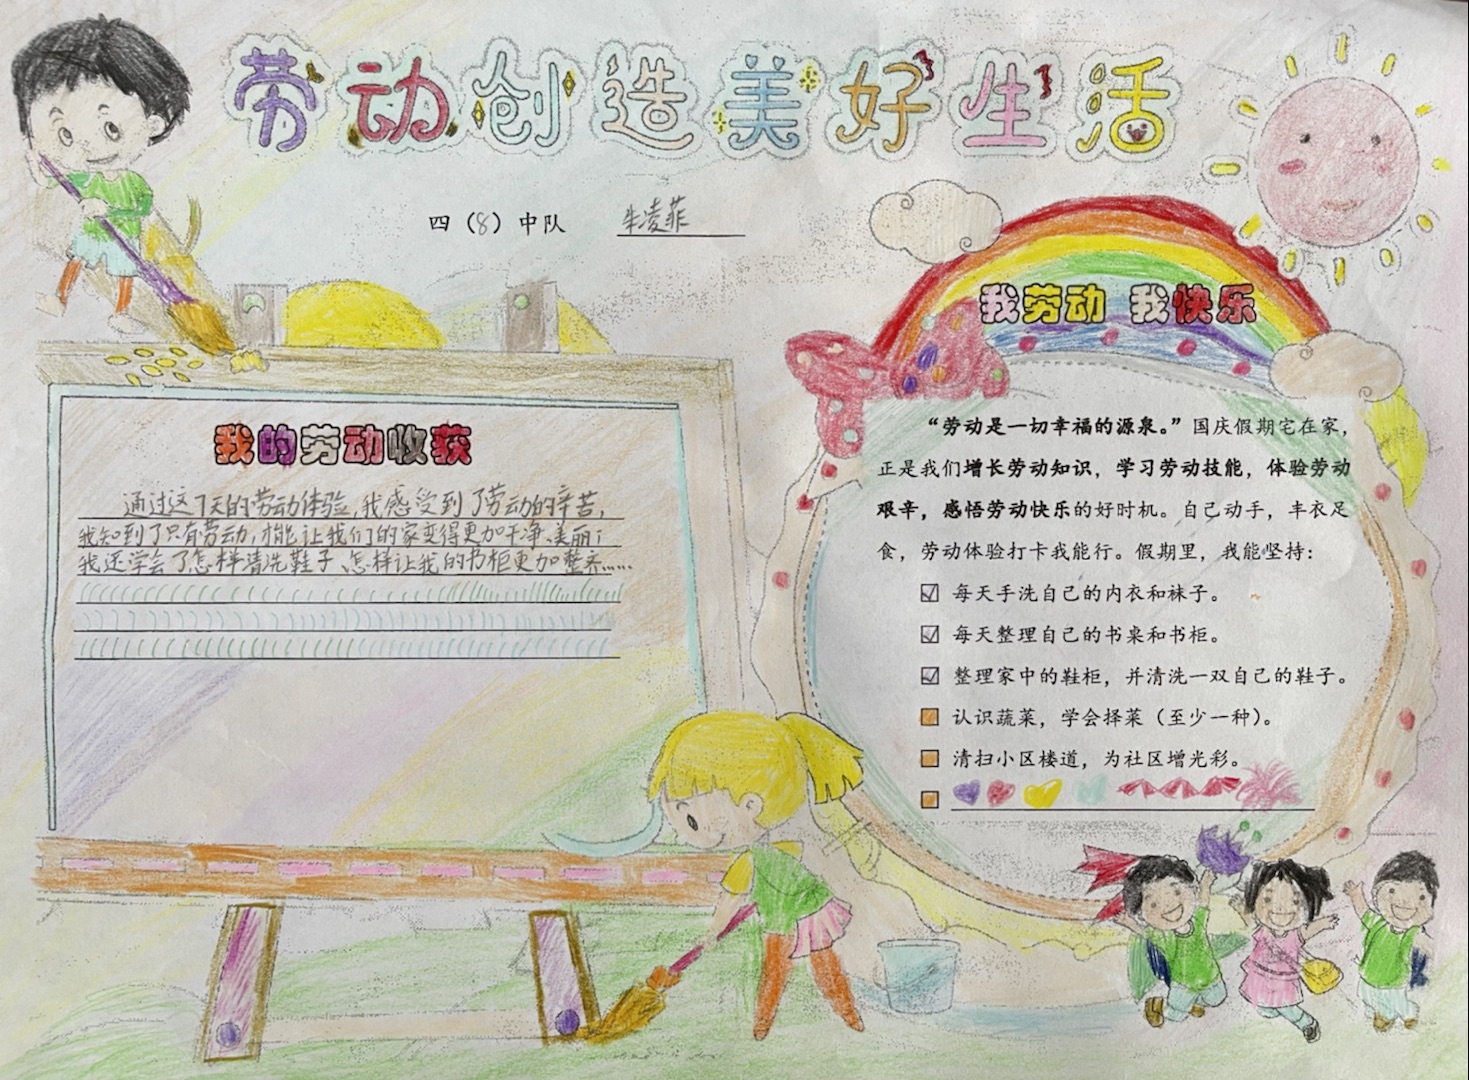 劳动创造美好生活
四（8）中队 朱凌菲
我的劳动收获
通过这7天的劳动体验,我感受到了劳动的辛苦,
我知到了只有劳动,才能让我们的家变得更加干净、美丽;
我还学会了怎样清洗鞋子、怎样让我的书柜更加整齐......
我劳动 我快乐
“劳动是一切幸福的源泉。”国庆假期宅在家，
正是我们增长劳动知识，学习劳动技能，体验劳动
艰辛，感悟劳动快乐的好时机。自己动手，丰衣足
食，劳动体验打卡我能行。假期里，我能坚持：
☑ 每天手洗自己的内衣和袜子。
☑ 每天整理自己的书桌和书柜。
☑ 整理家中的鞋柜，并清洗一双自己的鞋子。
认识蔬菜，学会择菜（至少一种）。
清扫小区楼道，为社区增光彩。